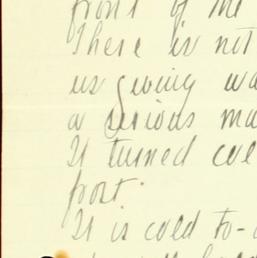 front of the
There is not
us giving wa
a serious ma
It turned col
frost.
It is cold to-